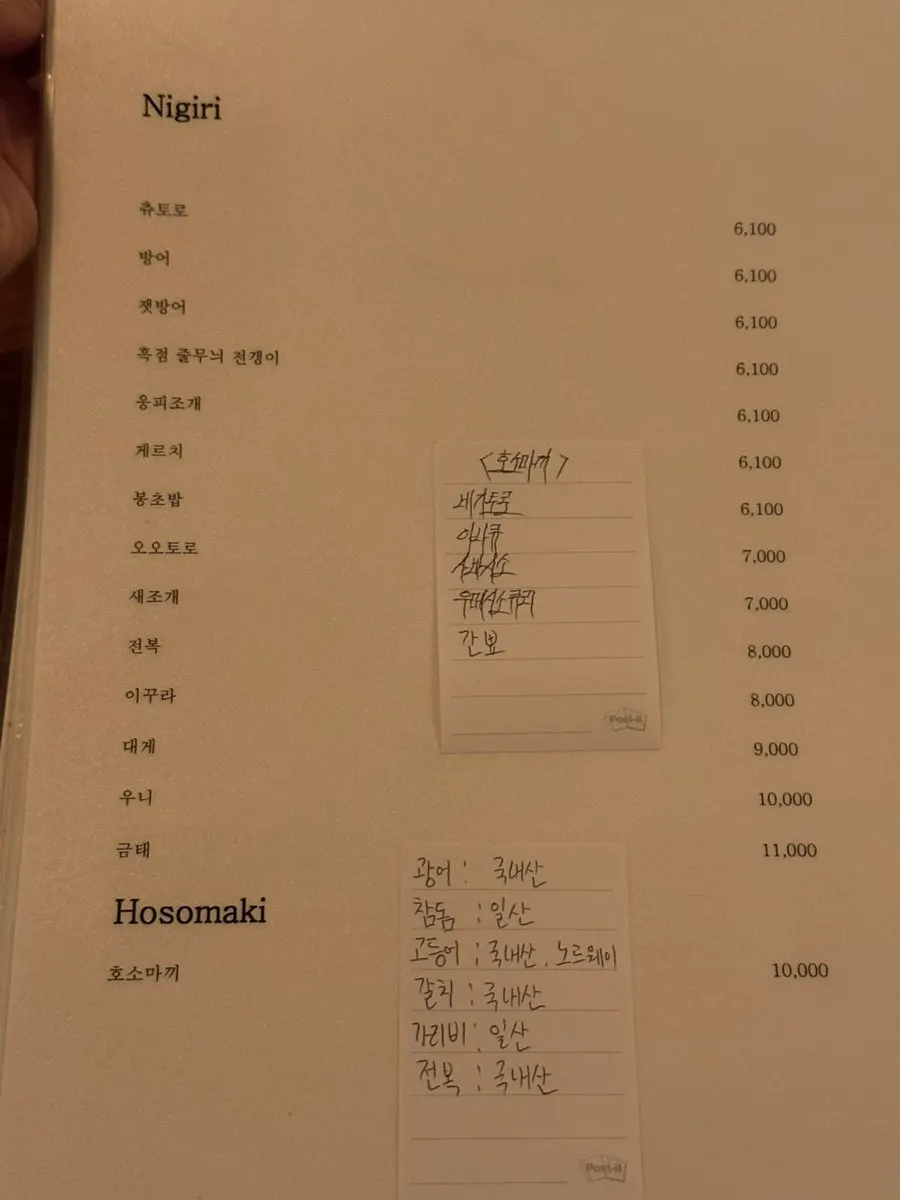 Nigiri
츄토로 6,100
방어 6,100
잿방어 6,100
흑점 줄무늬 전갱이 6,100
웅피조개 6,100
게르치 6,100
봉초밥 6,100
오오토로 7,000
새조개 7,000
전복 8,000
이꾸라 8,000
대게 9,000
우니 10,000
금태 11,000
Hosomaki
호소마끼 10,000
<호소마끼>
네기토로
이나큐
우메시소큐리
간뾰
Post-it
광어 : 국내산
참돔 : 일산
고등어 : 국내산, 노르웨이
갈치 : 국내산
가리비 : 일산
전복 : 국내산
Post-it